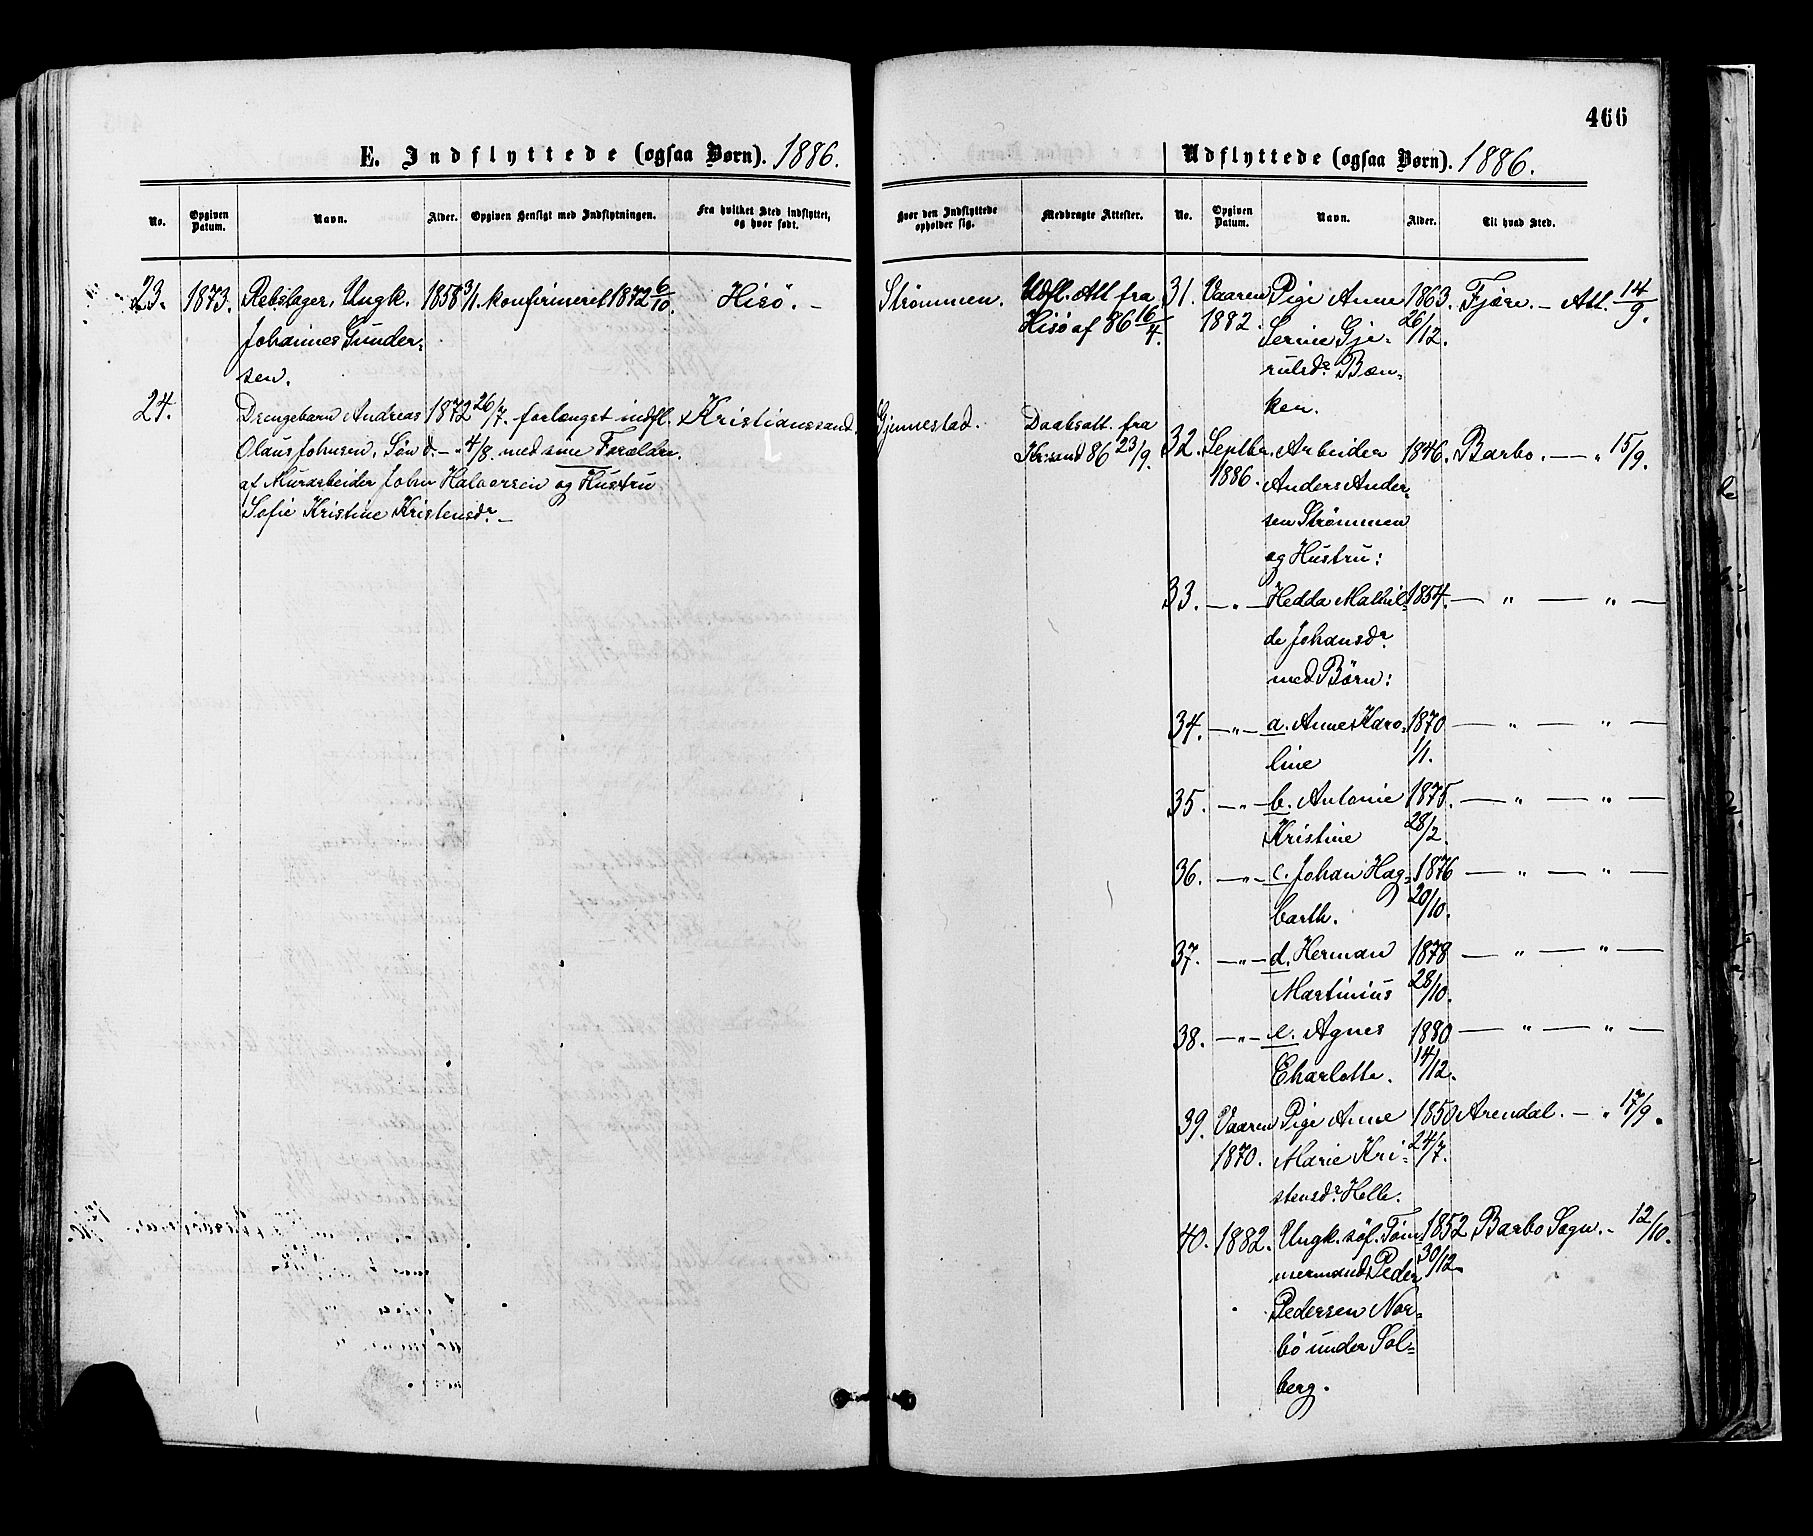 466
E. Indflyttede (ogsaa Børn). 1886.
No. Opgiven Datum. Navn. Alder. Opgiven Hensigt med Indflytningen. Fra hvilket Sted indflyttet, og hvor født.
Hvor den Indflyttede opholder sig. Medbragte Attester.
23. 1873. Rebslager, Ungk. 1858 3/1. konfirmeret 1872 6/10. Hisö. – Strømmen. Udfl. Att fra
Johannes Gunder- Hisö af 86 16/4.
sen.
24. Drengebarn Andreas 1872 26/7. forlænget indfl. Kristianssand. Gjennestad. Daabsatt. fra
Olaus Johnsen, Søn d. – " 4/8. med sine Forældre. Kr.sand 86 23/9.
af Murarbeider John Halvorsen og Hustru
Sofie Kristine Kristensdr. –
Udflyttede (ogsaa Børn). 1886.
No. Opgiven Datum. Navn. Alder. Til hvad Sted.
31. Vaaren Pige Anne 1863. Fjære. – Att. 14/9.
1882. Serine Gje- 26/12.
rulsdr. Bæn-
ken.
32. Septbr. Arbeider 1846. Barbo. – " 15/9.
1886. Anders Ander-
sen Strømmen
og Hustru:
33. – " – Hedda Mathil- 1854. – " – " –
de Johansdr.
med Børn:
34. – " – a. Anne Karo- 1870 – " – " –
line 1/1.
35. – " – b. Antonie 1875. – " – " –
Kristine 28/2.
36. – " – c. Johan Hag- 1876 – " – " –
barth. 20/10.
37. – " – d. Herman 1878 – " – " –
Martinius 28/10.
38. – " – e. Agnes 1880 – " – " –
Charlotte. 14/12.
39. Vaaren Pige Anne 1850 Arendal. – " 17/9.
1870. Marie Kri- 24/7.
stensdr. Helle.
40. 1882. Ungk. søf. Töm- 1852 Barbo Sogn. – 12/10.
mermand Peder 30/12.
Pedersen Nor-
bö under Sol-
berg.